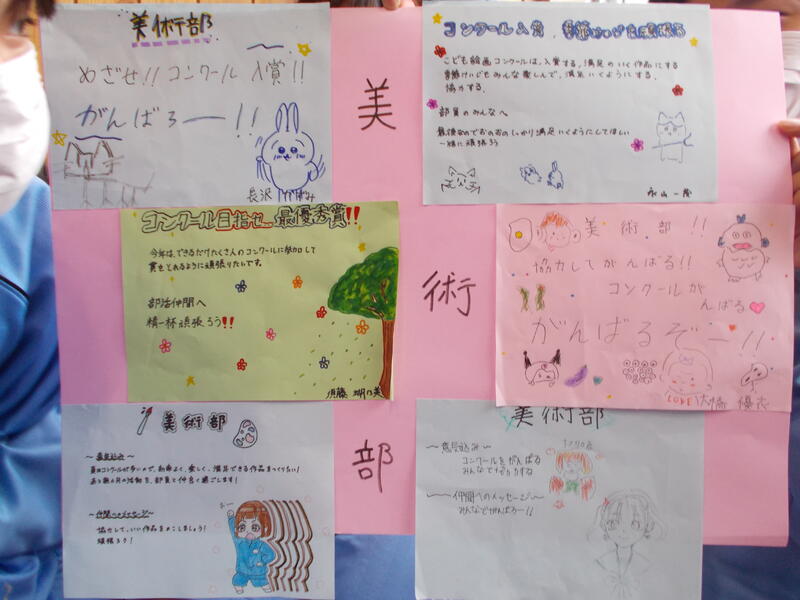 美術部
美術部
めざせ!!コンクール入賞!!
がんばろー!!
長沢
コンクール入賞、
こども絵画コンクールは、入賞する、満足のいく作品にする
協力する。
部員のみんなへ
一緒に頑張ろう
コンクール目指せ 最優秀賞!!
今年は、できるだけたくさんのコンクールに参加して
賞をとれるように頑張りたいです。
部活仲間へ
精一杯頑張ろう!!
須藤
美術部!!
協力してがんばる!!
コンクールが
んばる
がんばるぞー!!
LOVE!
美術部
~意気込み~
夏のコンクールが多いので、効率よく、楽しく、満足できる作品をつくりたい!
あと数ヵ月の活動を、部員と仲良く過ごします!
~仲間へのメッセージ~
協力して、いい作品をのこしましょう!
頑張ろう!
おー
美術部
~意気込み~
コンクールをがんばる
みんなで協力する
~仲間へのメッセージ~
みんなでがんばろー!!